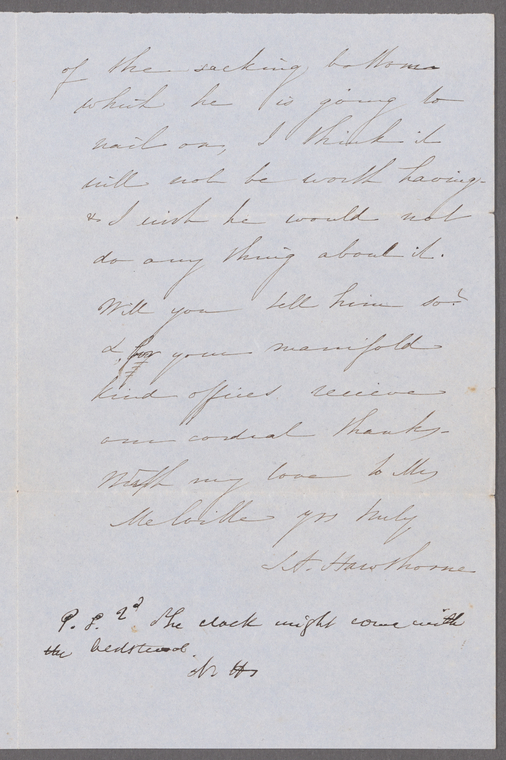 of the sacking bottom
which he is going to
nail on, I think it
will not be worth having -
& I wish he would not
do any thing about it.
Will you tell him so?
& for your manifold
kind offices recieve
our cordial thanks -
With my love to Mrs
Melville yrs truly
S. A. Hawthorne
P. S. 2d. The clock might come with
the bedstead.
N. H.